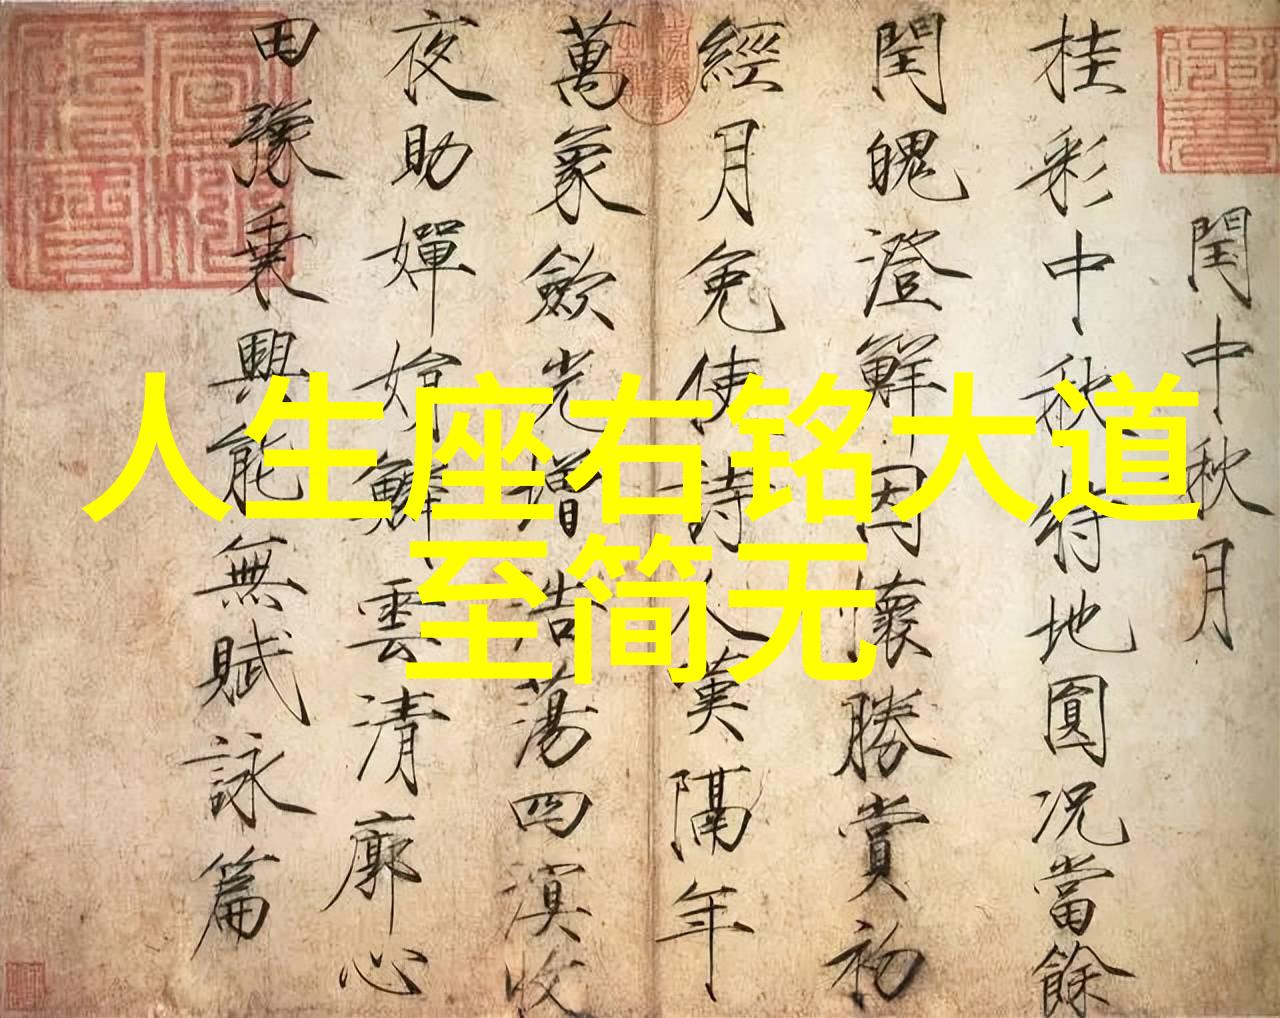 閏中秋月
桂彩中秋特地圓況當餘
閏魄澄鮮因懷勝賞初
經月免使詩人嘆隔年
萬象歛光增浩蕩四溟收
夜助嬋娟鮮雲清廓心
田豫乗興能無賦詠篇
人生座右铭大道
至简无